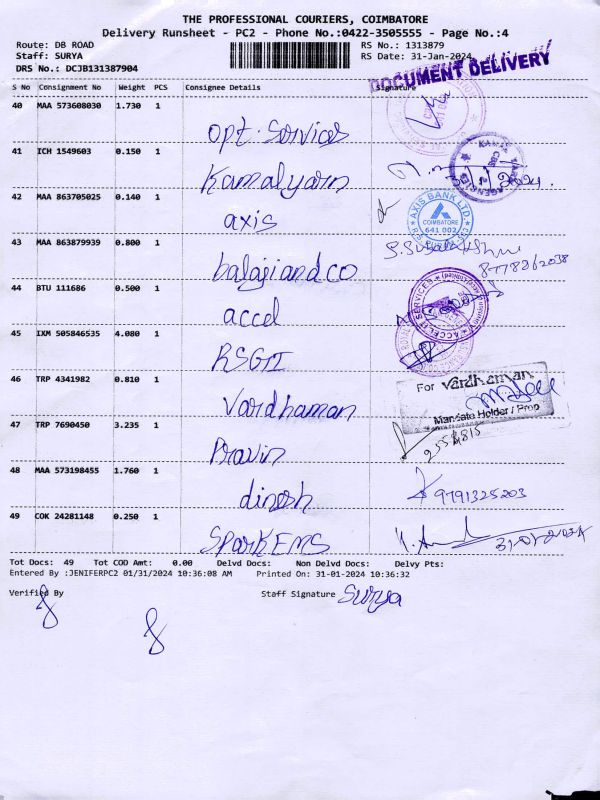 THE PROFESSIONAL COURIERS, COIMBATORE
Delivery Runsheet - PC2 - Phone No.:0422-3505555 - Page No.:4
Route: DB ROAD
RS No.: 1313879
Staff: SURYA
RS Date: 31-Jan-2024
DRS No.: DCJB131387904
DOCUMENT DELIVERY
S No Consignment No Weight PCS Consignee Details Signature
40 MAA 573608030 1.730 1
opt. Services
41 ICH 1549603 0.150 1
Kamalyarn
42 MAA 863705025 0.140 1
axis
AXIS BANK LTD.
COIMBATORE
641 002
43 MAA 863879939 0.800 1
balajiandco
8778262038
44 BTU 111686 0.500 1
accel
ACCEL IT SERVICES
45 IXM 505846535 4.080 1
RSGTI
46 TRP 4341982 0.810 1
Vardhaman
For Vardhaman
Mandate Holder / Prop
47 TRP 7690450 3.235 1
Pravin
48 MAA 573198455 1.760 1
dinesh
9791325203
49 COK 24281148 0.250 1
SparkEMS
31-01-2024
Tot Docs: 49 Tot COD Amt: 0.00 Delvd Docs: Non Delvd Docs: Delvy Pts:
Entered By :JENIFERPC2 01/31/2024 10:36:08 AM Printed On: 31-01-2024 10:36:32
Verified By
Staff Signature Surya